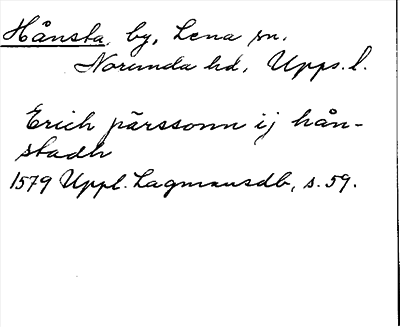 Hånsta, by, Lena sn.
Norunda hd, Upps. l.
Erich pärssonn ij hån-
stadh
1579 Uppl. Lagmansdb, s. 59.